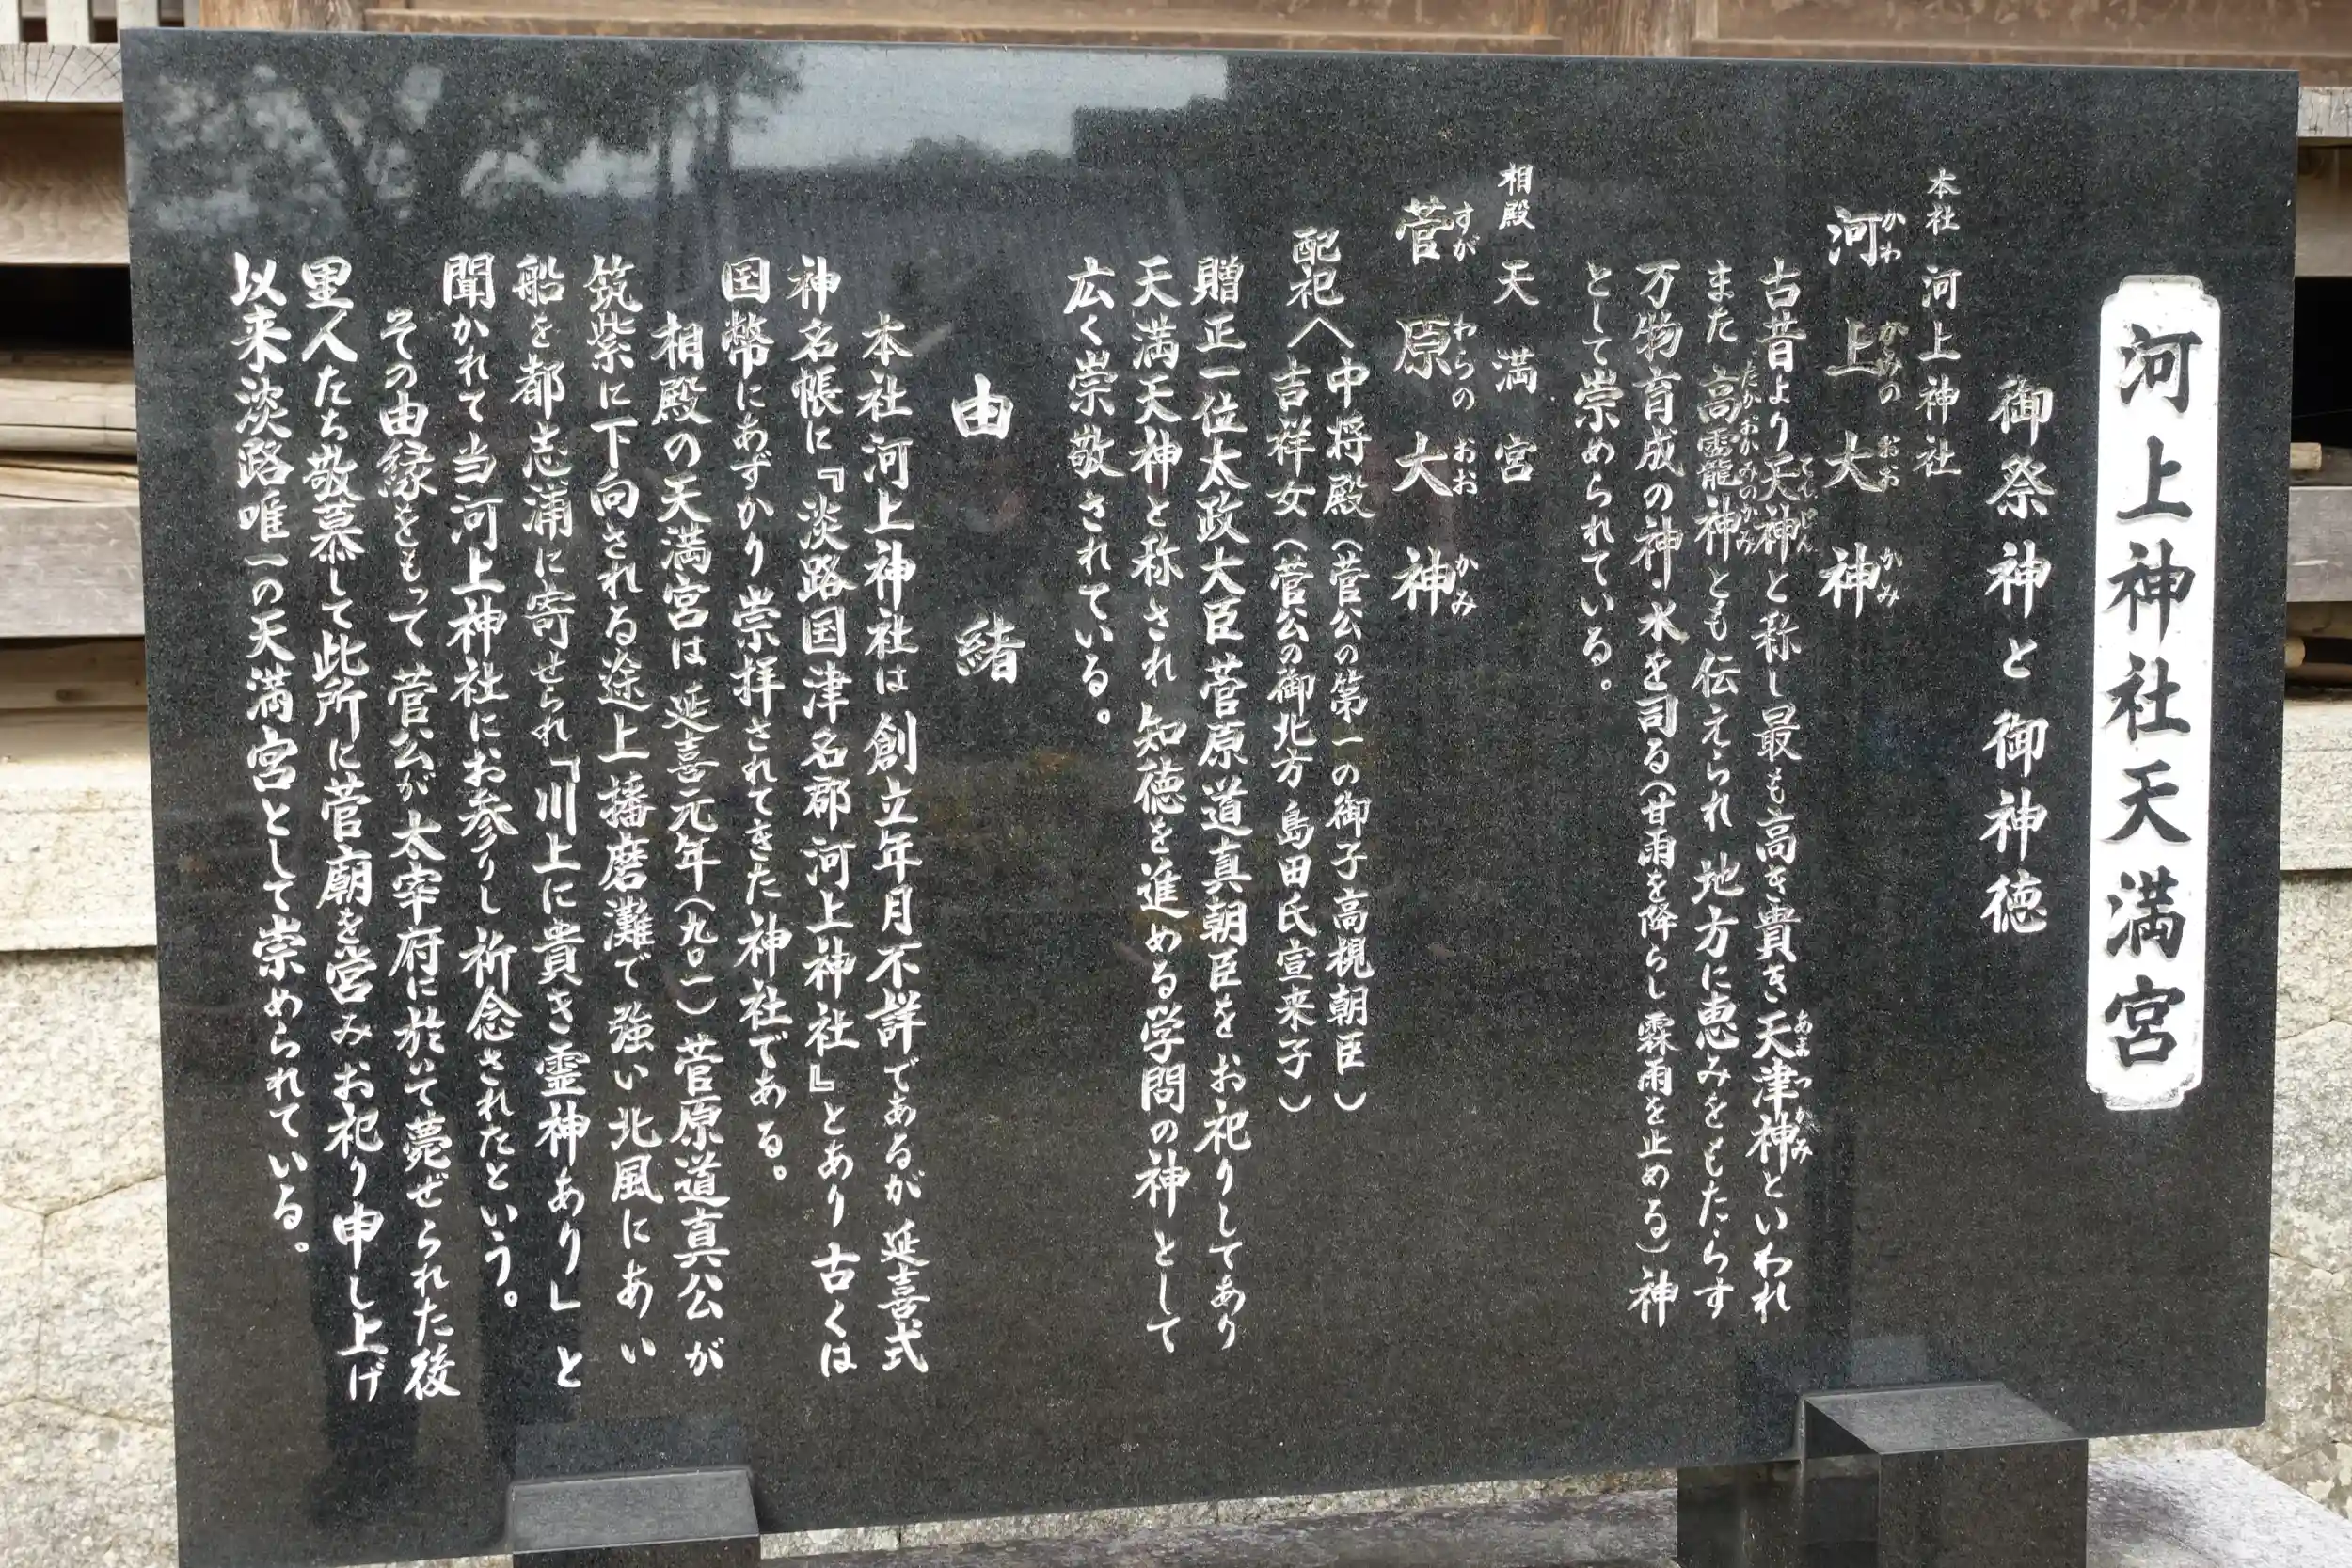 河上神社天満宮
御祭神と御神徳
本社 河上神社
河上大神
かわかみのおおかみ
古昔より天神と称し最も高き貴き天津神といわれ
てんじん
あまつかみ
また高龗神とも伝えられ 地方に恵みをもたらす
たかおかみのかみ
万物育成の神 水を司る(甘雨を降らし霖雨を止める)神
として崇められている。
相殿 天満宮
菅原大神
すがわらのおおかみ
配祀
中将殿(菅公の第一の御子高梘朝臣)
吉祥女(菅公の御北方 島田氏宣来子)
贈正一位太政大臣菅原道真朝臣をお祀りしてあり
天満天神と称され 知徳を進める学問の神として
広く崇敬されている。
由緒
本社河上神社は創立年月不詳であるが 延喜式
神名帳に『淡路国津名郡河上神社』とあり 古くは
国幣にあずかり崇拝されてきた神社である。
相殿の天満宮は 延喜元年(九〇一)菅原道真公が
筑紫に下向される途上 播磨灘で強い北風にあい
船を都志浦に寄せられ「川上に貴き霊神あり」と
聞かれて当河上神社にお参りし祈念されたという。
その由縁をもって 菅公が太宰府に於いて薨ぜられた後
里人たち敬慕して此所に菅廟を営みお祀り申し上げ
以来淡路唯一の天満宮として崇められている。